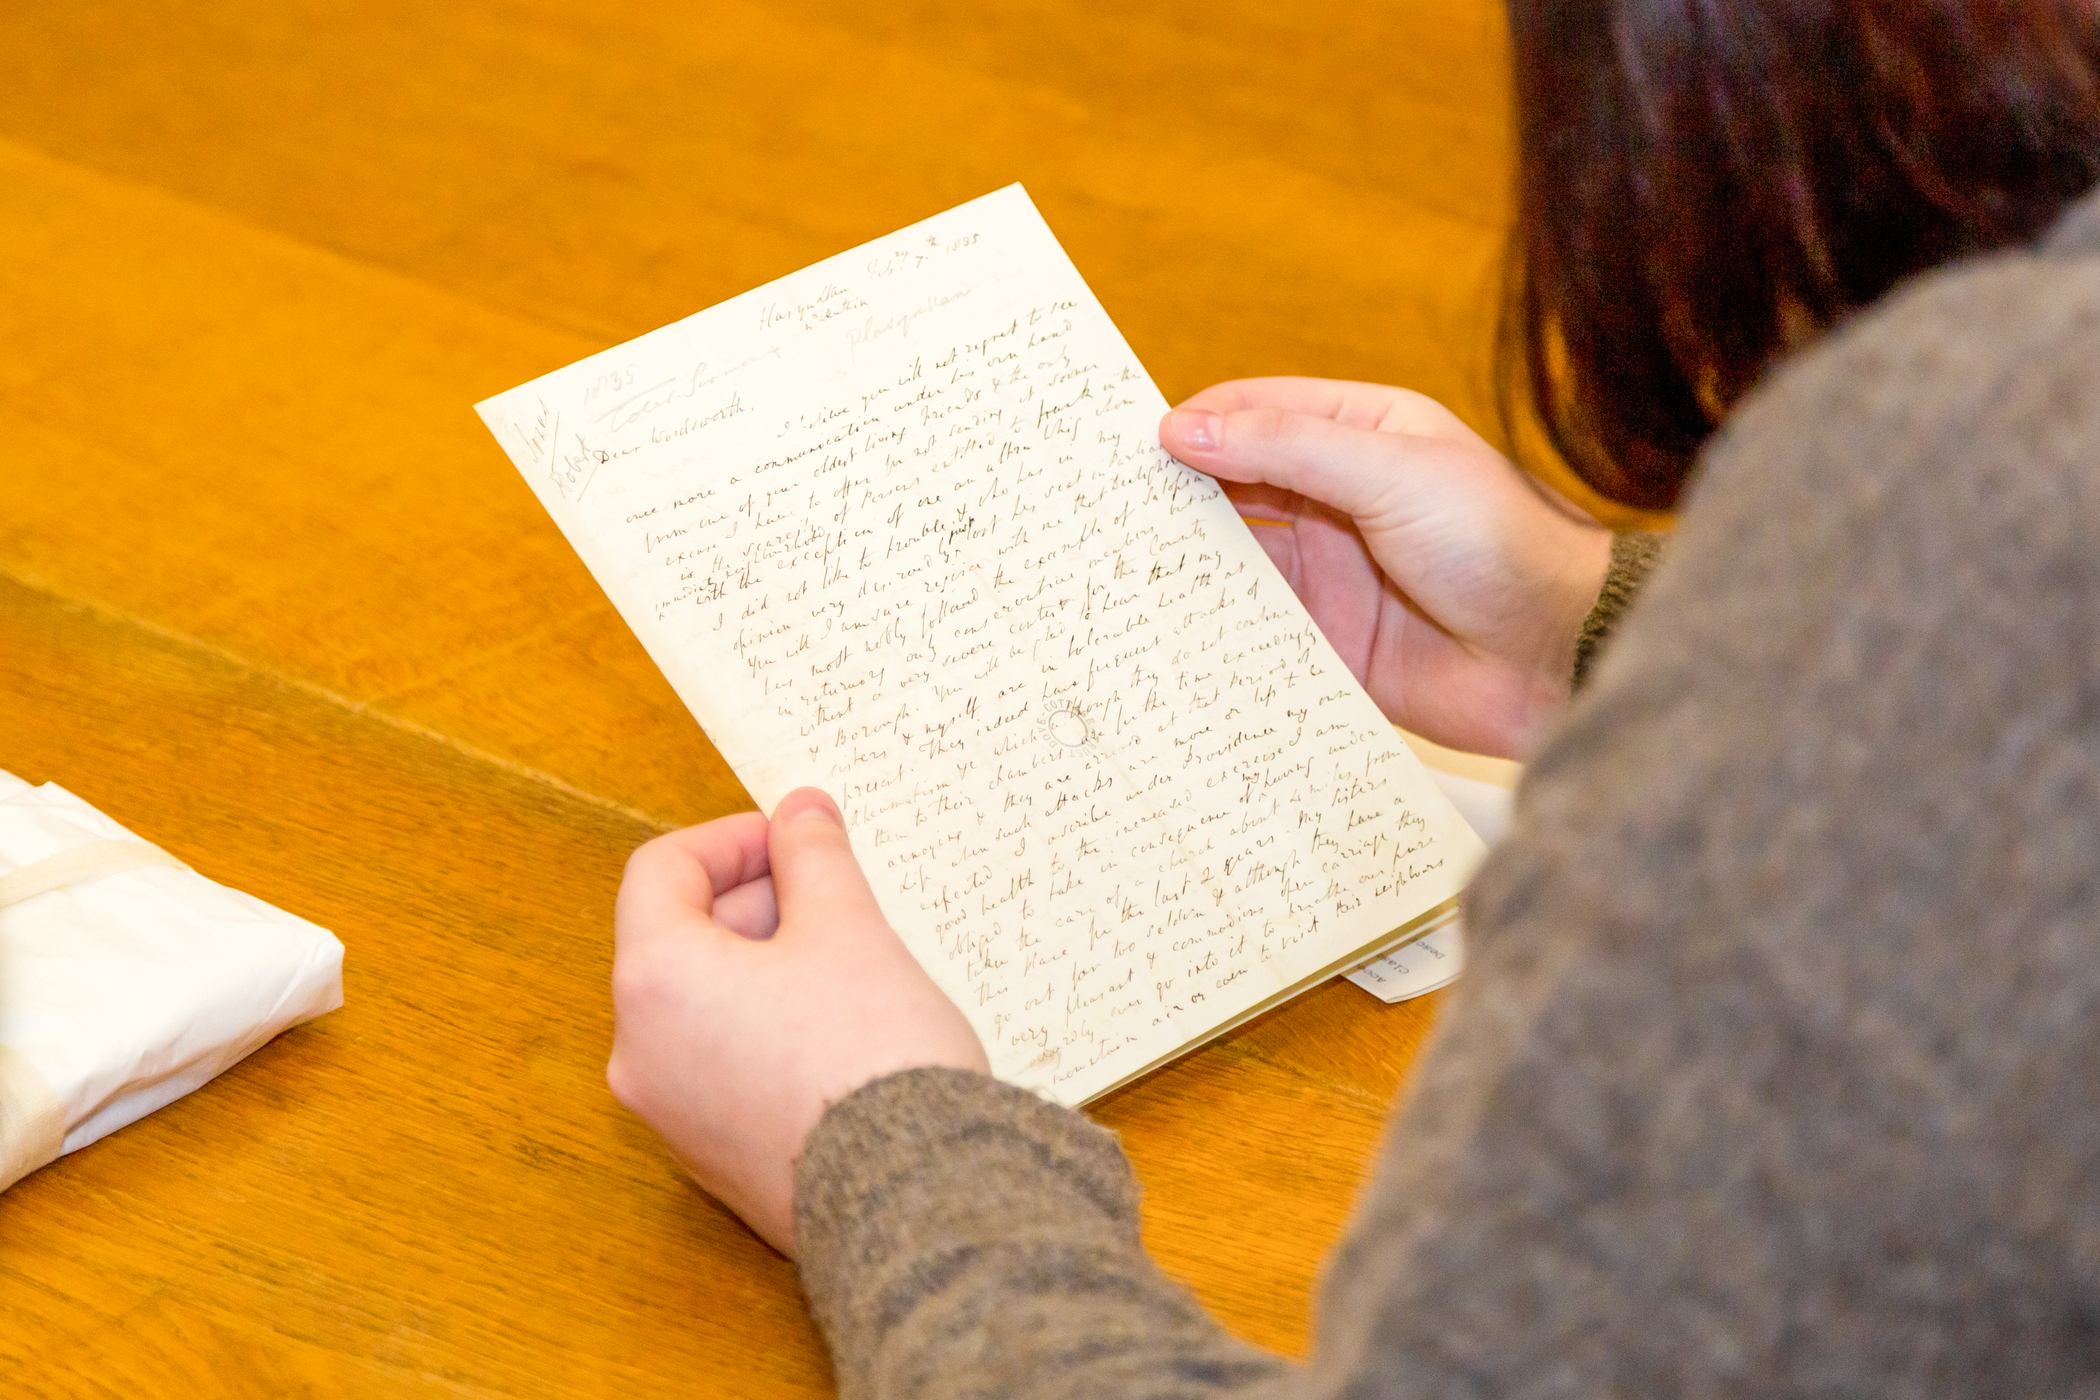 Feby. 7th 1835
Plasyndan
Plasynllan
1835
Dear Wordsworth,
Jones
Robert
I believe you will not regret to see
once more a communication under his own hand
from one of your oldest living friends & the only
excuse I have to offer for not sending it sooner
is the scarcity of persons entitled to frank in the
immediate neighbourhood
with the exception of one an ultra Whig whom
I did not like to trouble & who has in my
opinion very deservedly just lost his seat in Parliament
You will I am sure rejoice with me that Denbighshire
has most nobly followed the example of Salopia
in returning only conservative members but not
without a very severe contest for the County
& Borough. You will be glad to hear that my
sisters & myself are in tolerable health at
present. They indeed have frequent attacks of
Rheumatism &c which though they do not confine
them to their chambers are for the time exceedingly
annoying & they are arrived at that period of
life when such attacks are more or less to be
expected. I ascribe under Providence my own
good health to the increased exercise I am
obliged to take in consequence of my having under
taken the care of a church about 4 miles from
this place for the last 2 years. My sisters
go out far too seldom & although they have a
very pleasant & commodious open carriage they
hardly ever go into it to breathe our pure
mountain air or even to visit their neighbours
DOVE COTTAGE
Acc
Clas
Desc